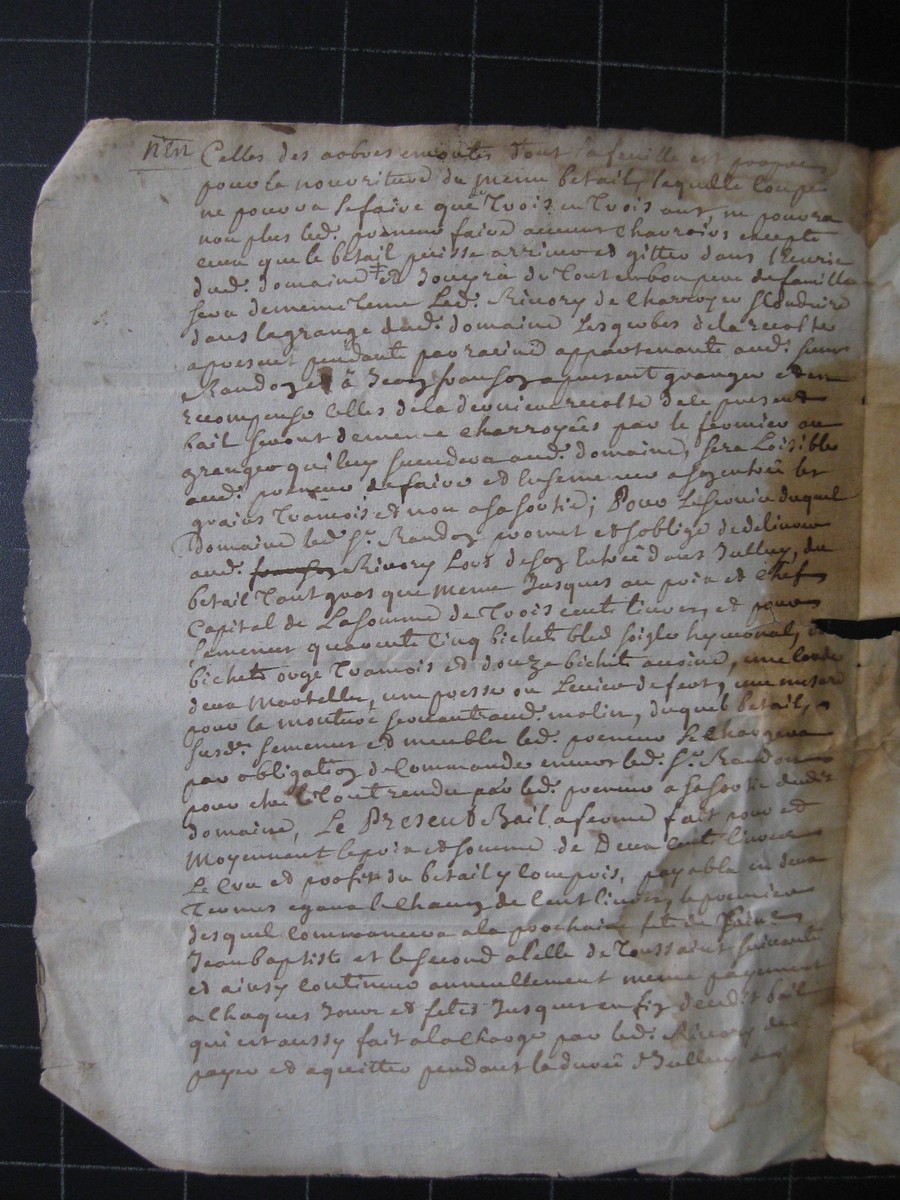 Celles des arbres emontés dont la feuille est propre
pour la nouriture du meme betail, laquelle coupe
ne pourra se faire que de Trois en Trois ans, ne pourra
non plus led. preneur faire aucuns charrois excepté
ceux que le betail puisse arriver et gitter dans l'ecurie
dud. domaine et Jouyra du Tout en bon pere de famille
sera de meme Tenu led. Rivory de charroyer et conduire
dans la grange dud. domaine Les gerbes de la recolte
a present pendante par racine appartenante aud. sieur
Randon et à Jean franson a present granger et en
recompense celles de la derniere recolte de le present
bail seront de meme charroyées par le fermier ou
granger qui luy succedera aud. domaine, sera Loisible
aud. preneur de faire et ensemencer a son entrée les
grains Tramois et non a sa sortie; Pour Le service duquel
Domaine led. Sr. Randon promet et s'oblige de delivrer
aud. Rivory Lors de son Entrée dans Iceluy, du
betail Tant gros que meme Jusques au prix et chef
Capital de La somme de Trois cent livres, et pour
semences quarente Cinq bichets bled soigle hyvernal,
bichets orge Tramois et douze bichets avoine, une
deux Martelles, une presse ou Levier de fert, une
pour la mouture servante aud. molin, duquel betail,
susd. semences et meubles led. preneur se chargera
par obligation de Commande envers led. Sr. Randon
pour etre le Tout rendu par led. preneur a sa sortie dudit
domaine, Le Present Bail a ferme fait pour et
Moyennent le prix et somme de Deux Cents livres
Le Cru et profit du betail y compris, payable en deux
Termes egaux le chacun de Cent livres, le premier
desquel commancera a la prochaine fete de St
Jean baptiste et le second a Celle de Toussaint suivante
et ainsy continuer annuellement meme payement
a chaques Jours et fetes Jusques en fin de cedit bail
qui est aussy fait a la charge par led. Rivory de
payer et aquitter pendant la durée d'Iceluy